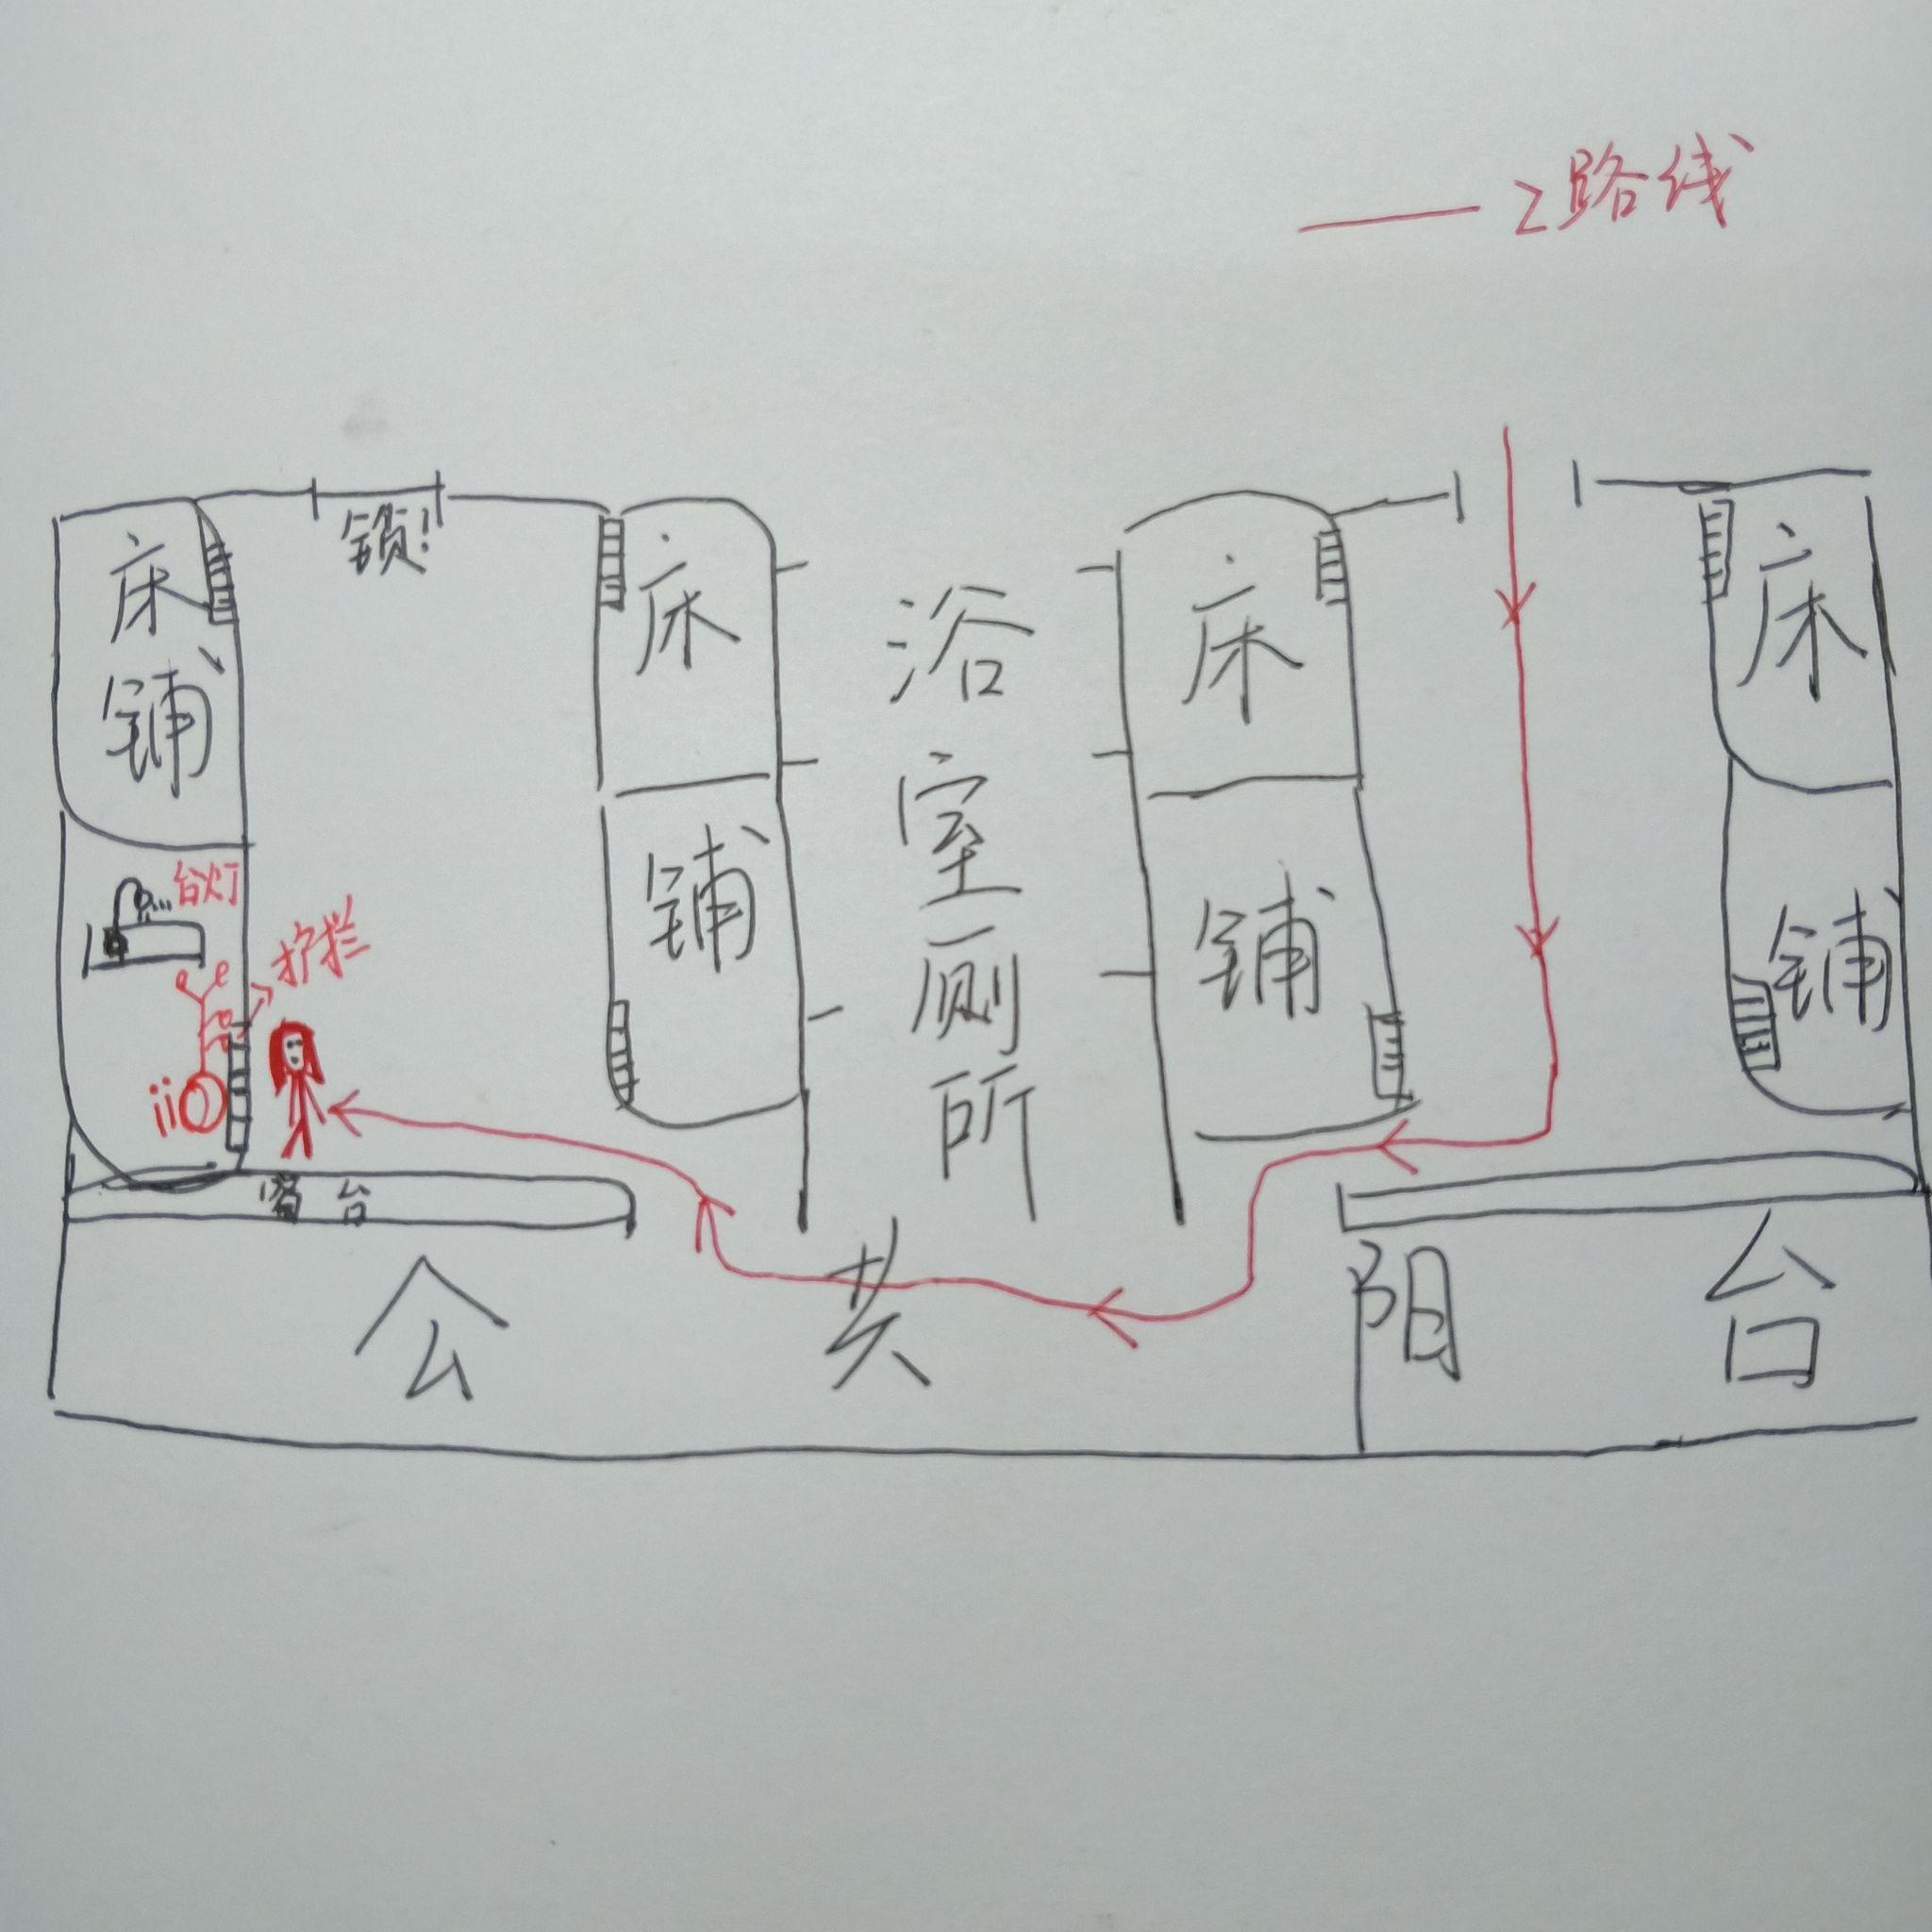 Z路线
锁!
床铺
床铺
浴室厕所
床铺
床铺
台灯
护拦
窗台
公共阳台